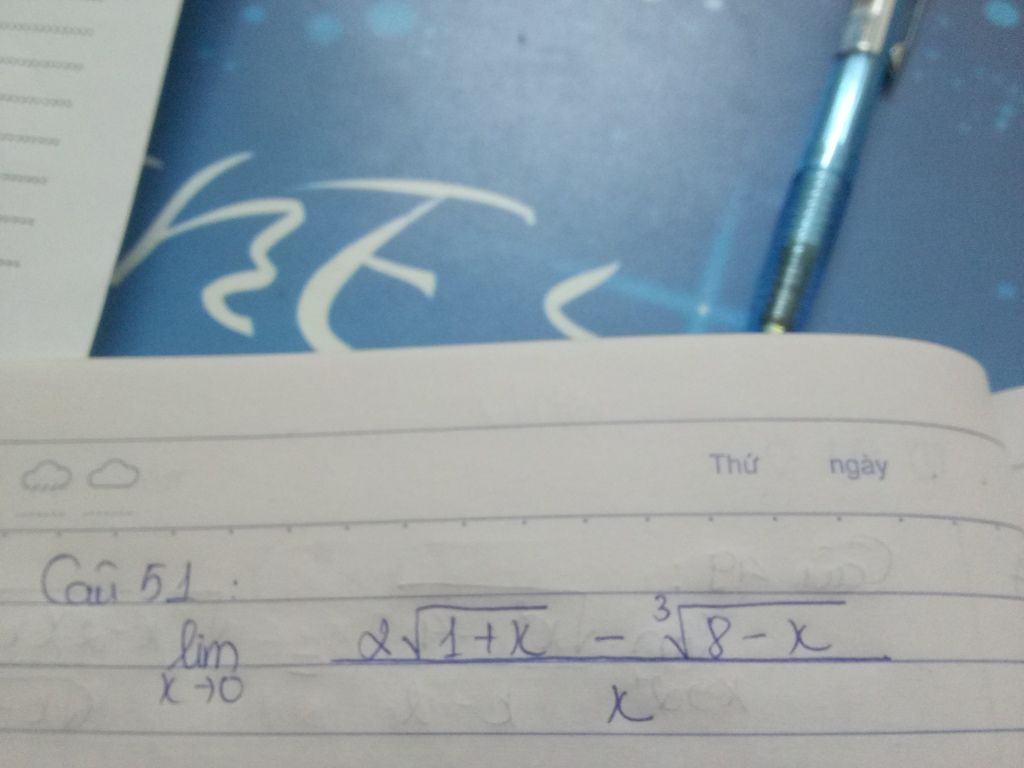 Thứ ngày
Câu 51:
lim x→0 (2√(1+x) - ³√(8-x)) / x